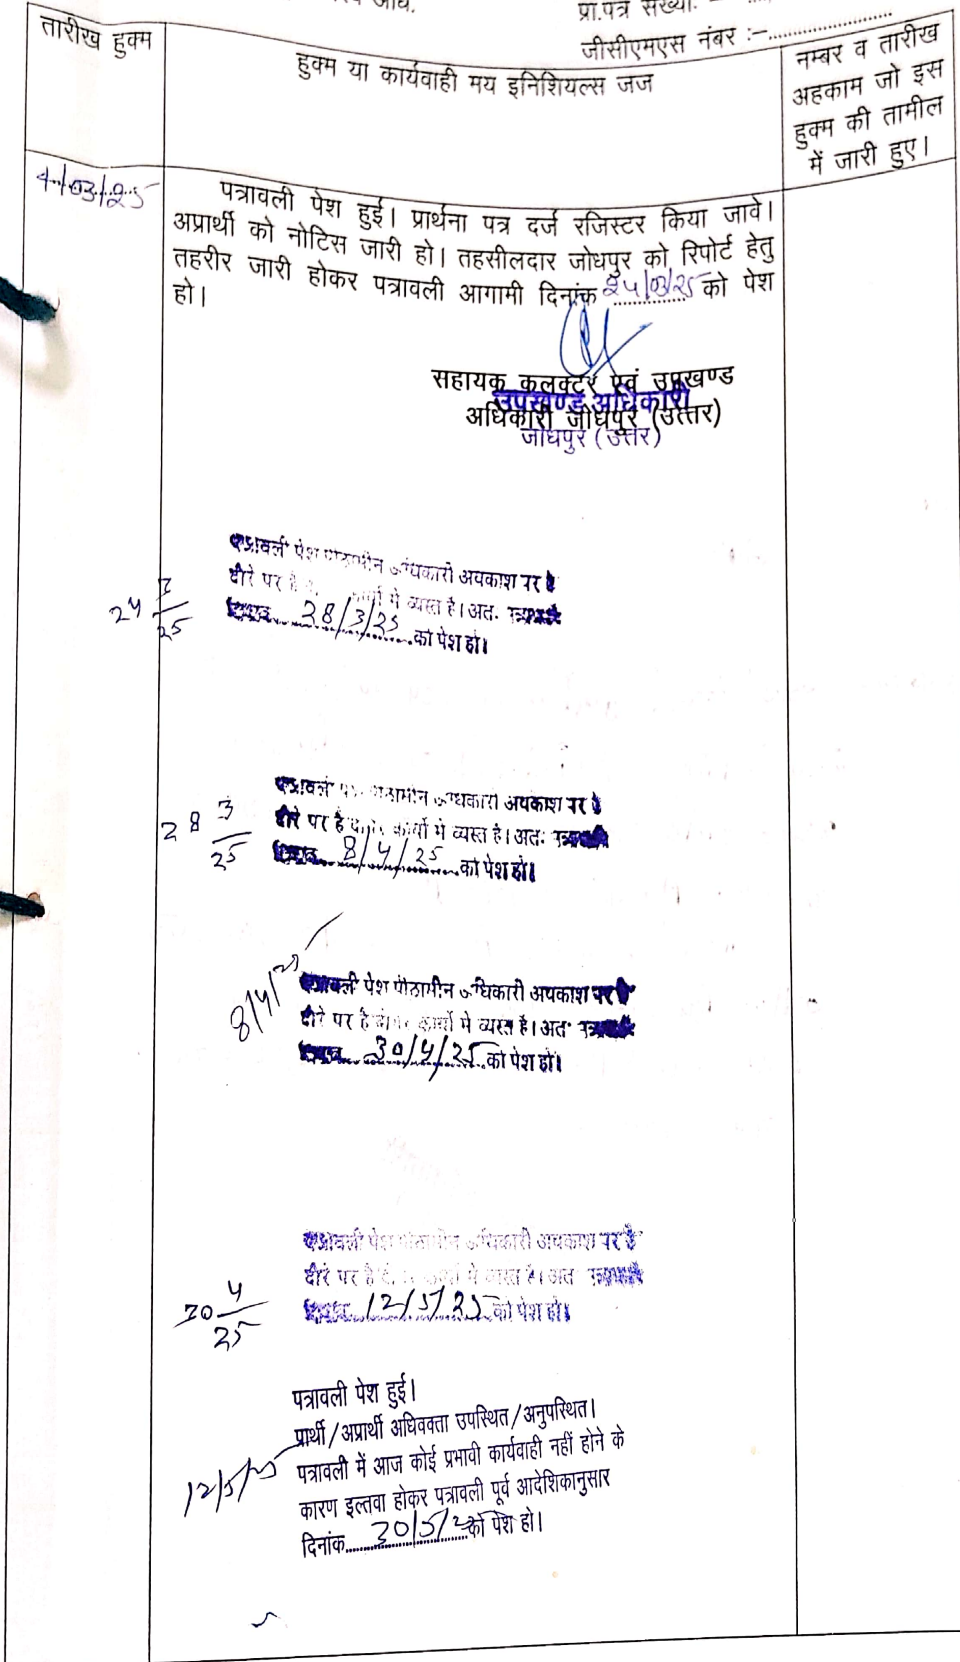 प्रा.पत्र संख्या.
जीसीएमएस नंबर :-
तारीख हुक्म
हुक्म या कार्यवाही मय इनिशियल्स जज
नम्बर व तारीख
अहकाम जो इस
हुक्म की तामील
में जारी हुए।
4/03/25
पत्रावली पेश हुई। प्रार्थना पत्र दर्ज रजिस्टर किया जावे।
अप्रार्थी को नोटिस जारी हो। तहसीलदार जोधपुर को रिपोर्ट हेतु
तहरीर जारी होकर पत्रावली आगामी दिनांक 24/03/25 को पेश
हो।
सहायक कलक्टर एवं उपखण्ड
उपखण्ड अधिकारी
अधिकारी जोधपुर (उत्तर)
जोधपुर (उत्तर)
पत्रावली पेश अधिकारी अवकाश पर है
दौरे पर है कार्यो मे व्यस्त है। अतः
28/3/25 को पेश हो।
24 3/25
पत्रावली अधिकारी अवकाश पर है
दौरे पर है कार्यो मे व्यस्त है। अतः
8/4/25 को पेश हो।
28 3/25
8/4/25
पत्रावली पेश पीठासीन अधिकारी अवकाश पर है
दौरे पर है कार्यो मे व्यस्त है। अतः
30/4/25 को पेश हो।
पत्रावली पेश अधिकारी अवकाश पर है
दौरे पर है मे व्यस्त है। अतः
12/5/25 को पेश हो।
30 4/25
पत्रावली पेश हुई।
प्रार्थी/अप्रार्थी अधिवक्ता उपस्थित/अनुपस्थित।
12/5/25
पत्रावली में आज कोई प्रभावी कार्यवाही नहीं होने के
कारण इल्तवा होकर पत्रावली पूर्व आदेशिकानुसार
दिनांक 30/5/2 को पेश हो।